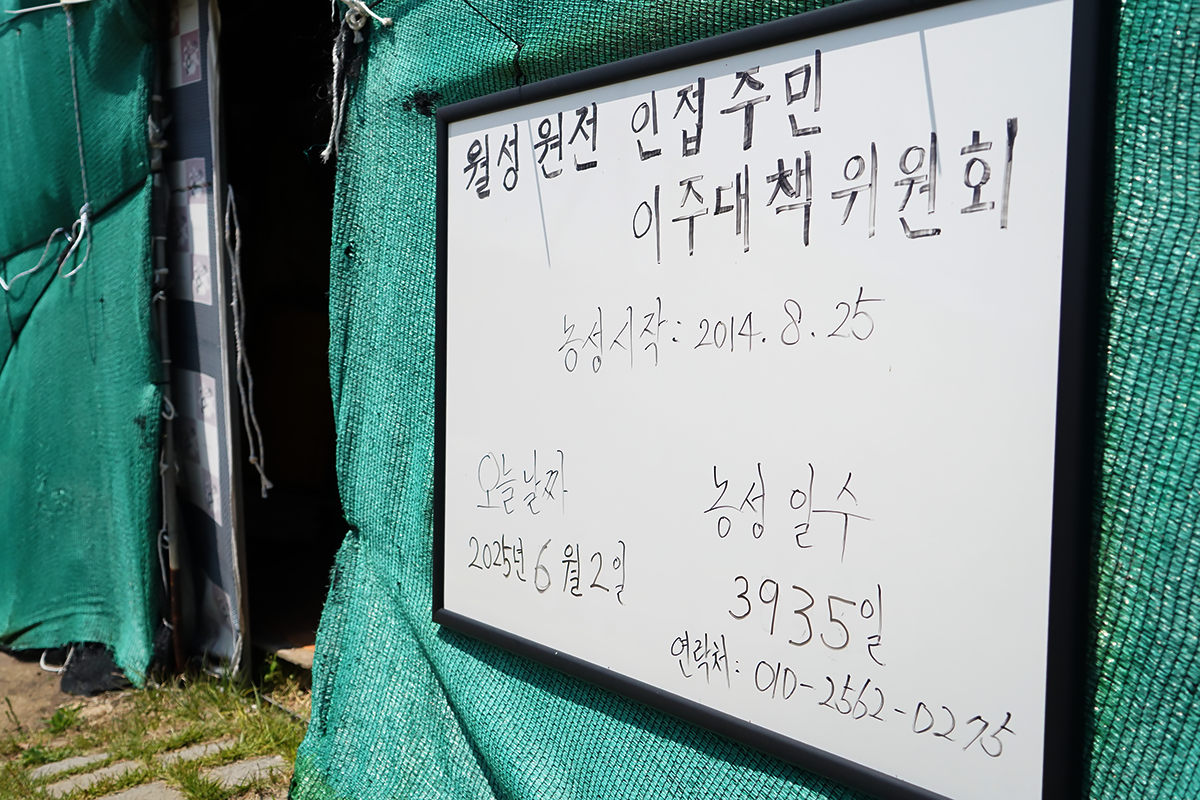 월성 원전 인접주민
이주대책위원회
농성시작: 2014. 8. 25
오늘날짜
2025년 6월 2일
농성 일수
3935일
연락처: 010-2562-0275